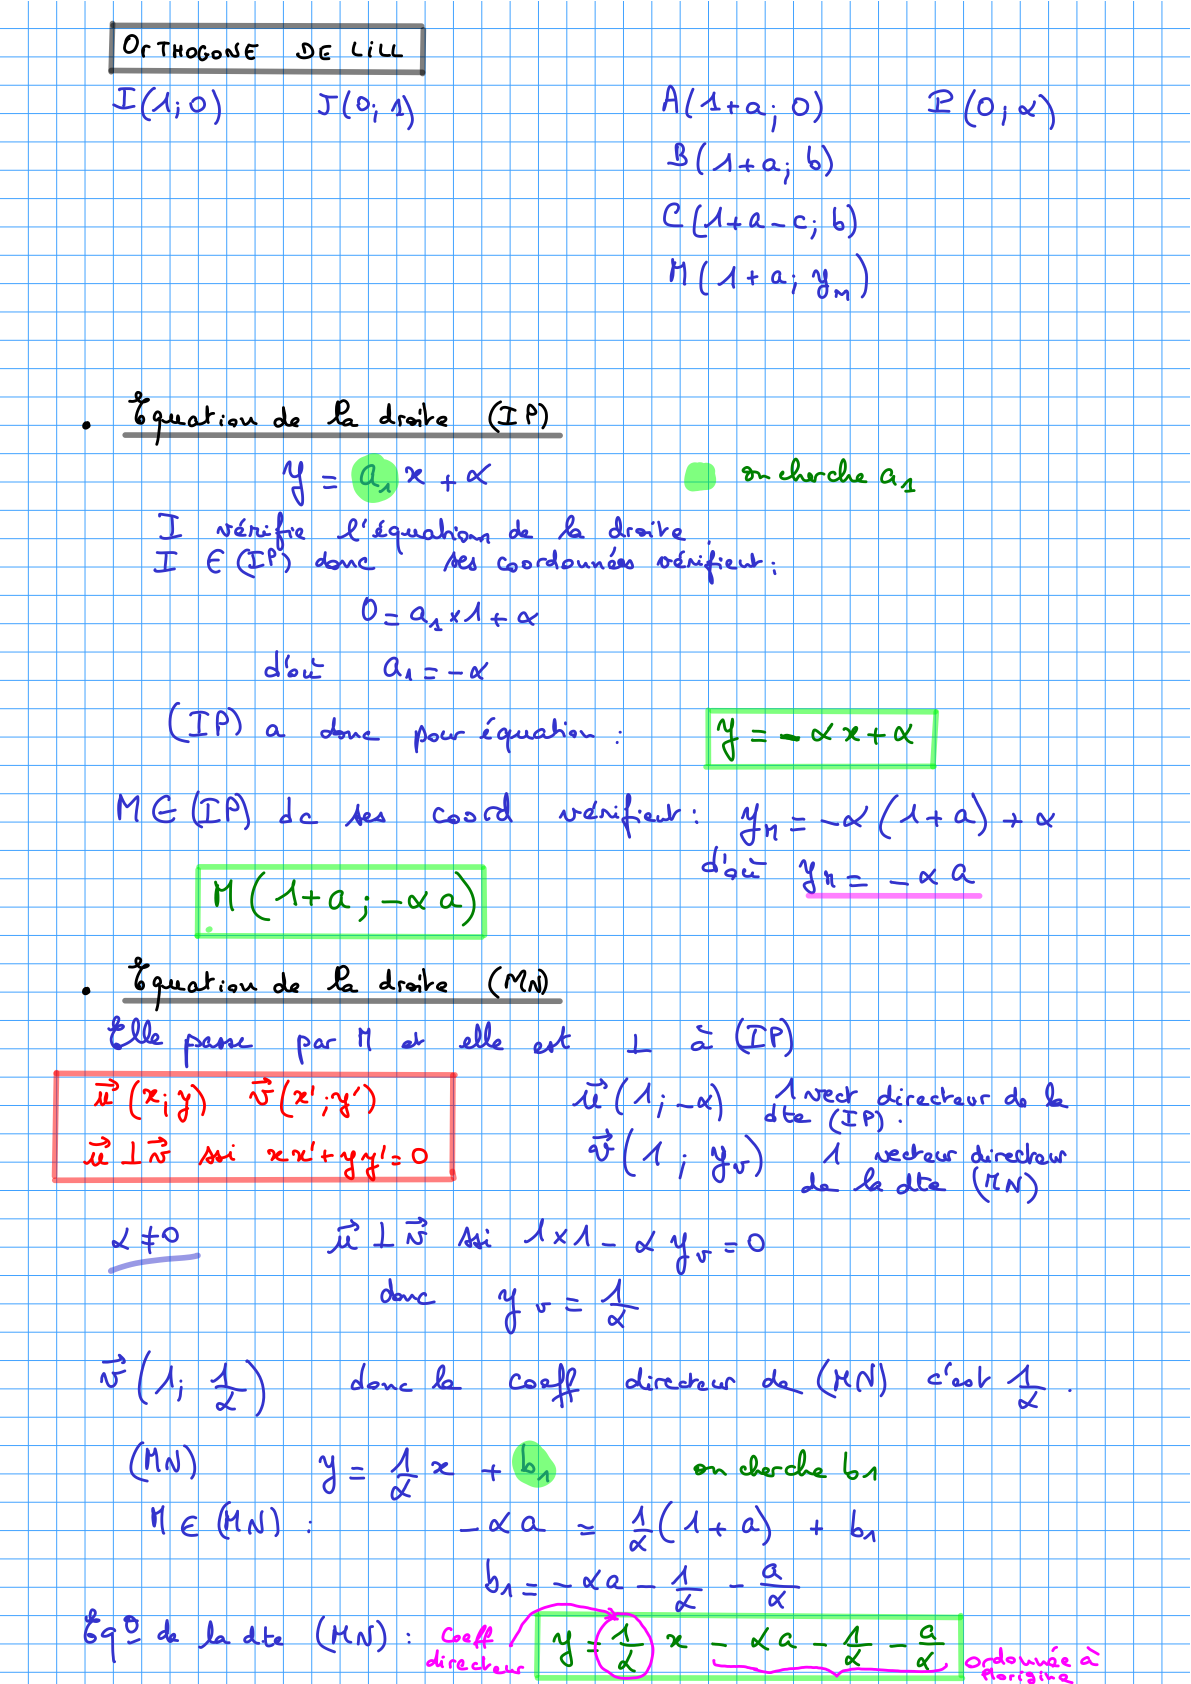 ORTHOGONE DE LILL
I(1;0) J(0;1) A(1+a;0) P(0;α)
B(1+a;b)
C(1+a-c;b)
M(1+a;y_M)
• Equation de la droite (IP)
y = a₁ x + α on cherche a₁
I vérifie l'équation de la droite
I ∈ (IP) donc ses coordonnées vérifient :
0 = a₁ × 1 + α
d'où a₁ = -α
(IP) a donc pour équation : y = -αx + α
M ∈ (IP) dc ses coord vérifient : y_M = -α(1+a) + α
d'où y_M = -αa
M(1+a ; -αa)
• Equation de la droite (MN)
Elle passe par M et elle est ⊥ à (IP)
u⃗(x;y) v⃗(x';y') u⃗(1;-α) 1 vect directeur de la
dte (IP).
u⃗ ⊥ v⃗ ssi xx'+yy'=0 v⃗(1; y_v) 1 vecteur directeur
de la dte (MN)
α ≠ 0 u⃗ ⊥ v⃗ ssi 1×1 - α y_v = 0
donc y_v = 1/α
v⃗(1; 1/α) donc le coeff directeur de (MN) c'est 1/α.
(MN) y = 1/α x + b₁ on cherche b₁
M ∈ (MN) : -αa = 1/α(1+a) + b₁
b₁ = -αa - 1/α - a/α
Eq° de la dte (MN) : coeff directeur y = 1/α x - αa - 1/α - a/α ordonnée à l'origine